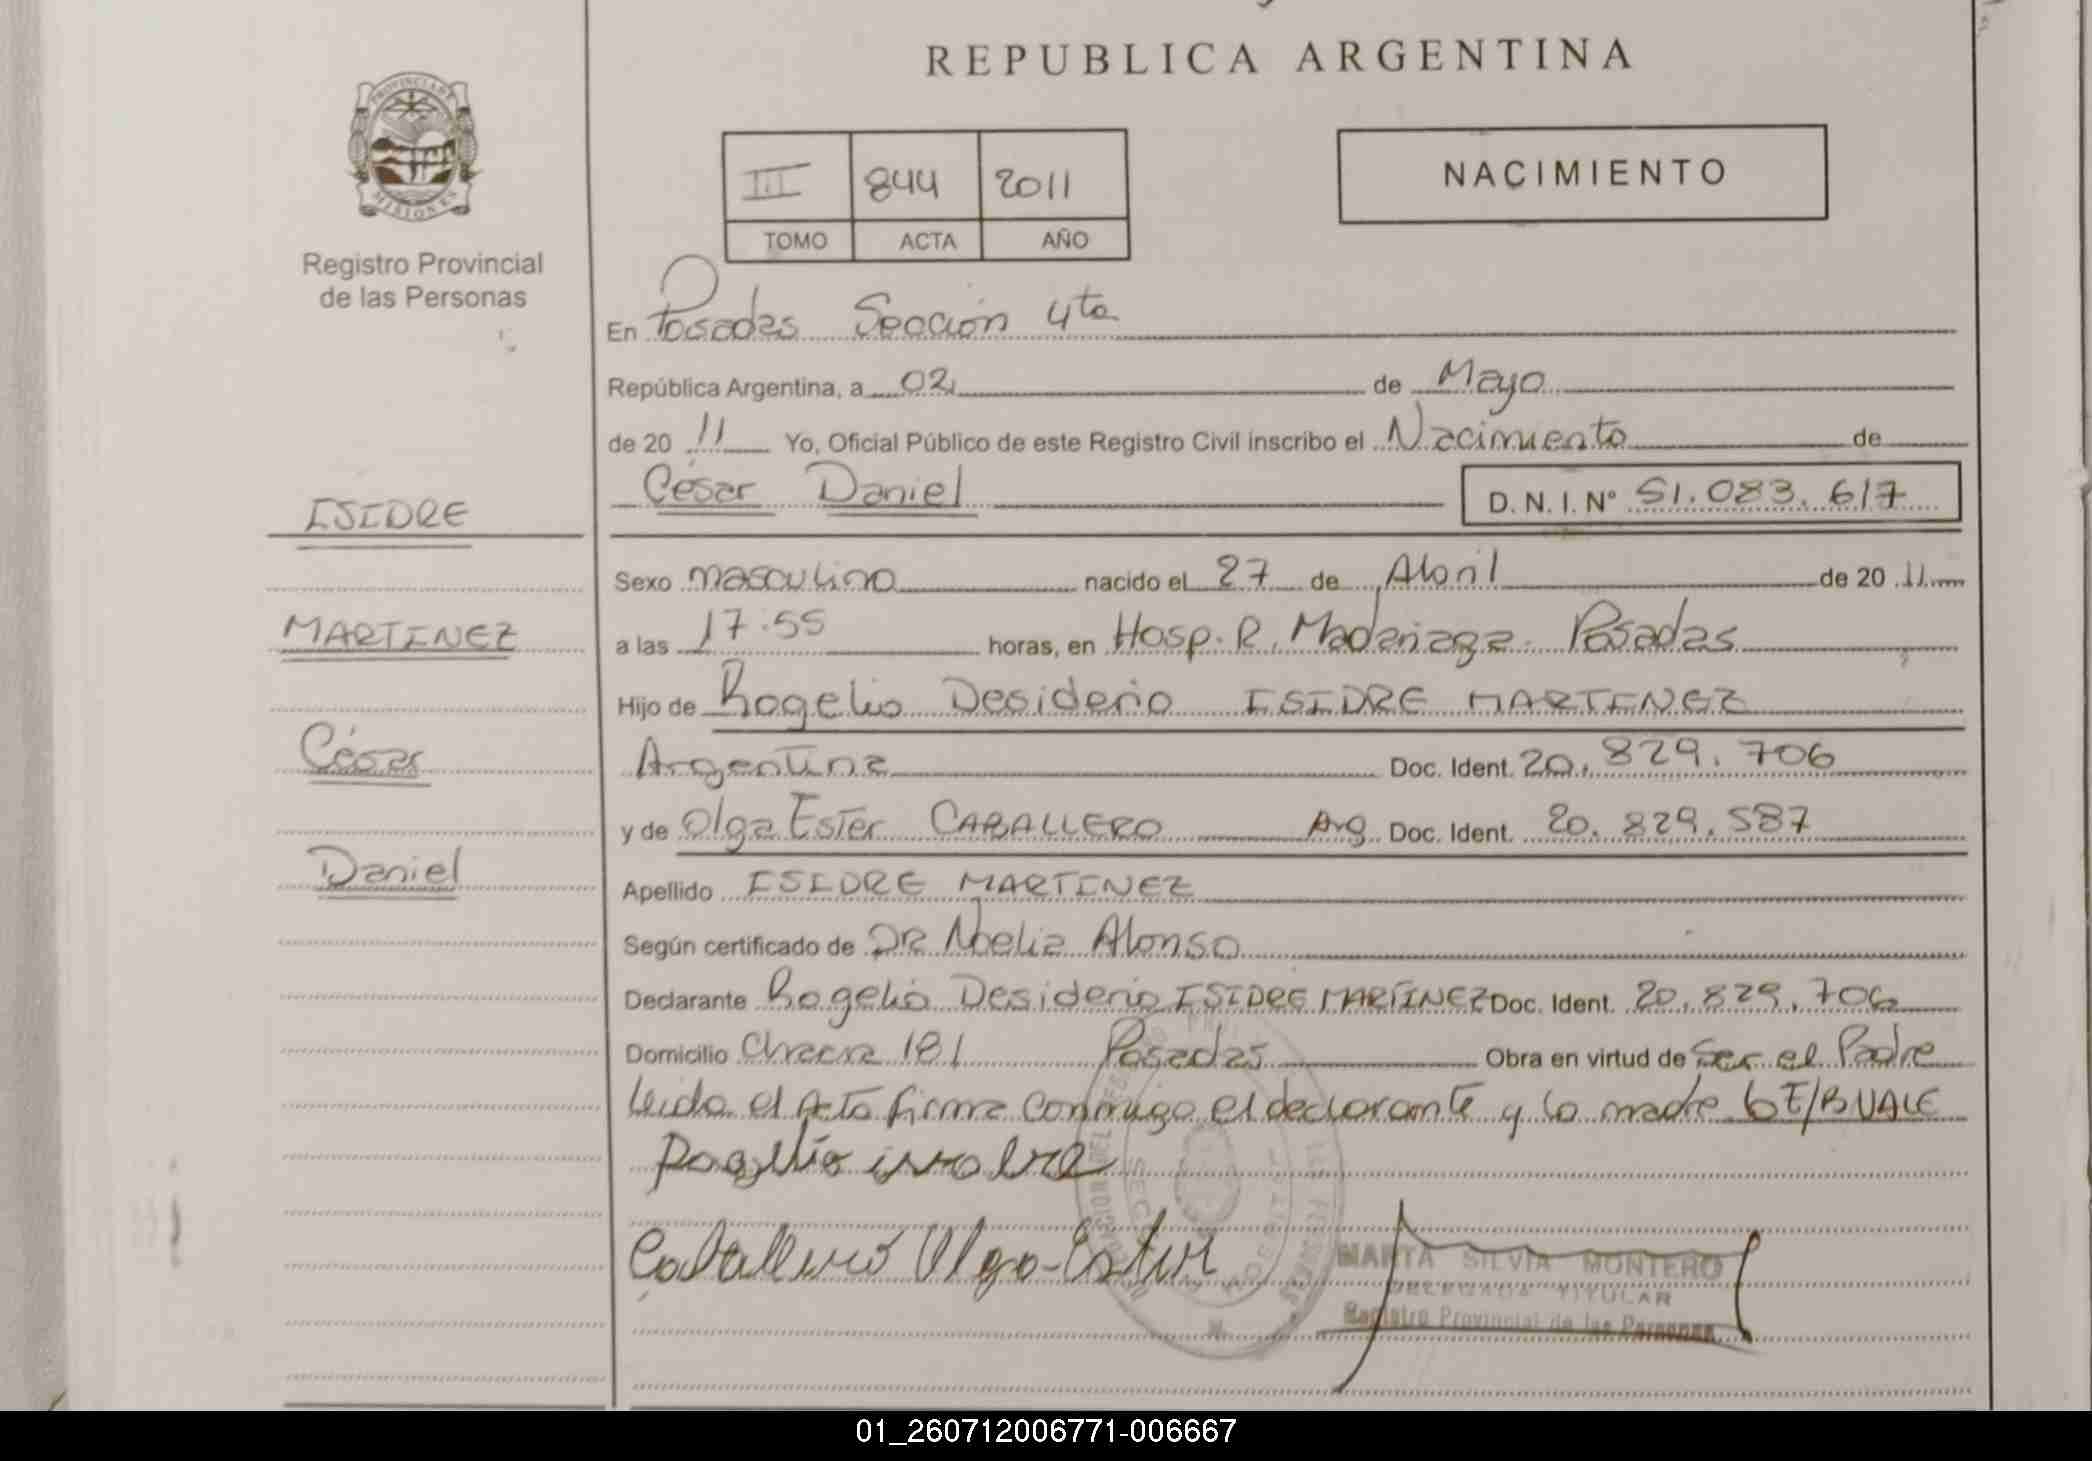 REPUBLICA ARGENTINA
PROVINCIA DE
MISIONES
Registro Provincial
de las Personas
III 844 2011
TOMO ACTA AÑO
NACIMIENTO
En Posadas Sección 4ta
República Argentina, a 02 de Mayo
de 20 11 Yo, Oficial Público de este Registro Civil inscribo el Nacimiento de
César Daniel D. N. I. N° 51.083.617
ISIDRE
MARTINEZ
César
Daniel
Sexo masculino nacido el 27 de Abril de 20 11
a las 17:55 horas, en Hosp. R. Madariaga. Posadas
Hijo de Rogelio Desiderio ISIDRE MARTINEZ
Argentina Doc. Ident. 20.829.706
y de Olga Ester CABALLERO Arg Doc. Ident. 20.829.587
Apellido ISIDRE MARTINEZ
Según certificado de DR Noelia Alonso
Declarante Rogelio Desiderio ISIDRE MARTINEZ Doc. Ident. 20.829.706
Domicilio Chacra 181 Posadas Obra en virtud de Ser el Padre
leida el Acta firma conmigo el declarante y la madre
Caballero Olga Ester
MARTA SILVIA MONTERO
DELEGADA TITULAR
Registro Provincial de las Personas
01_260712006771-006667